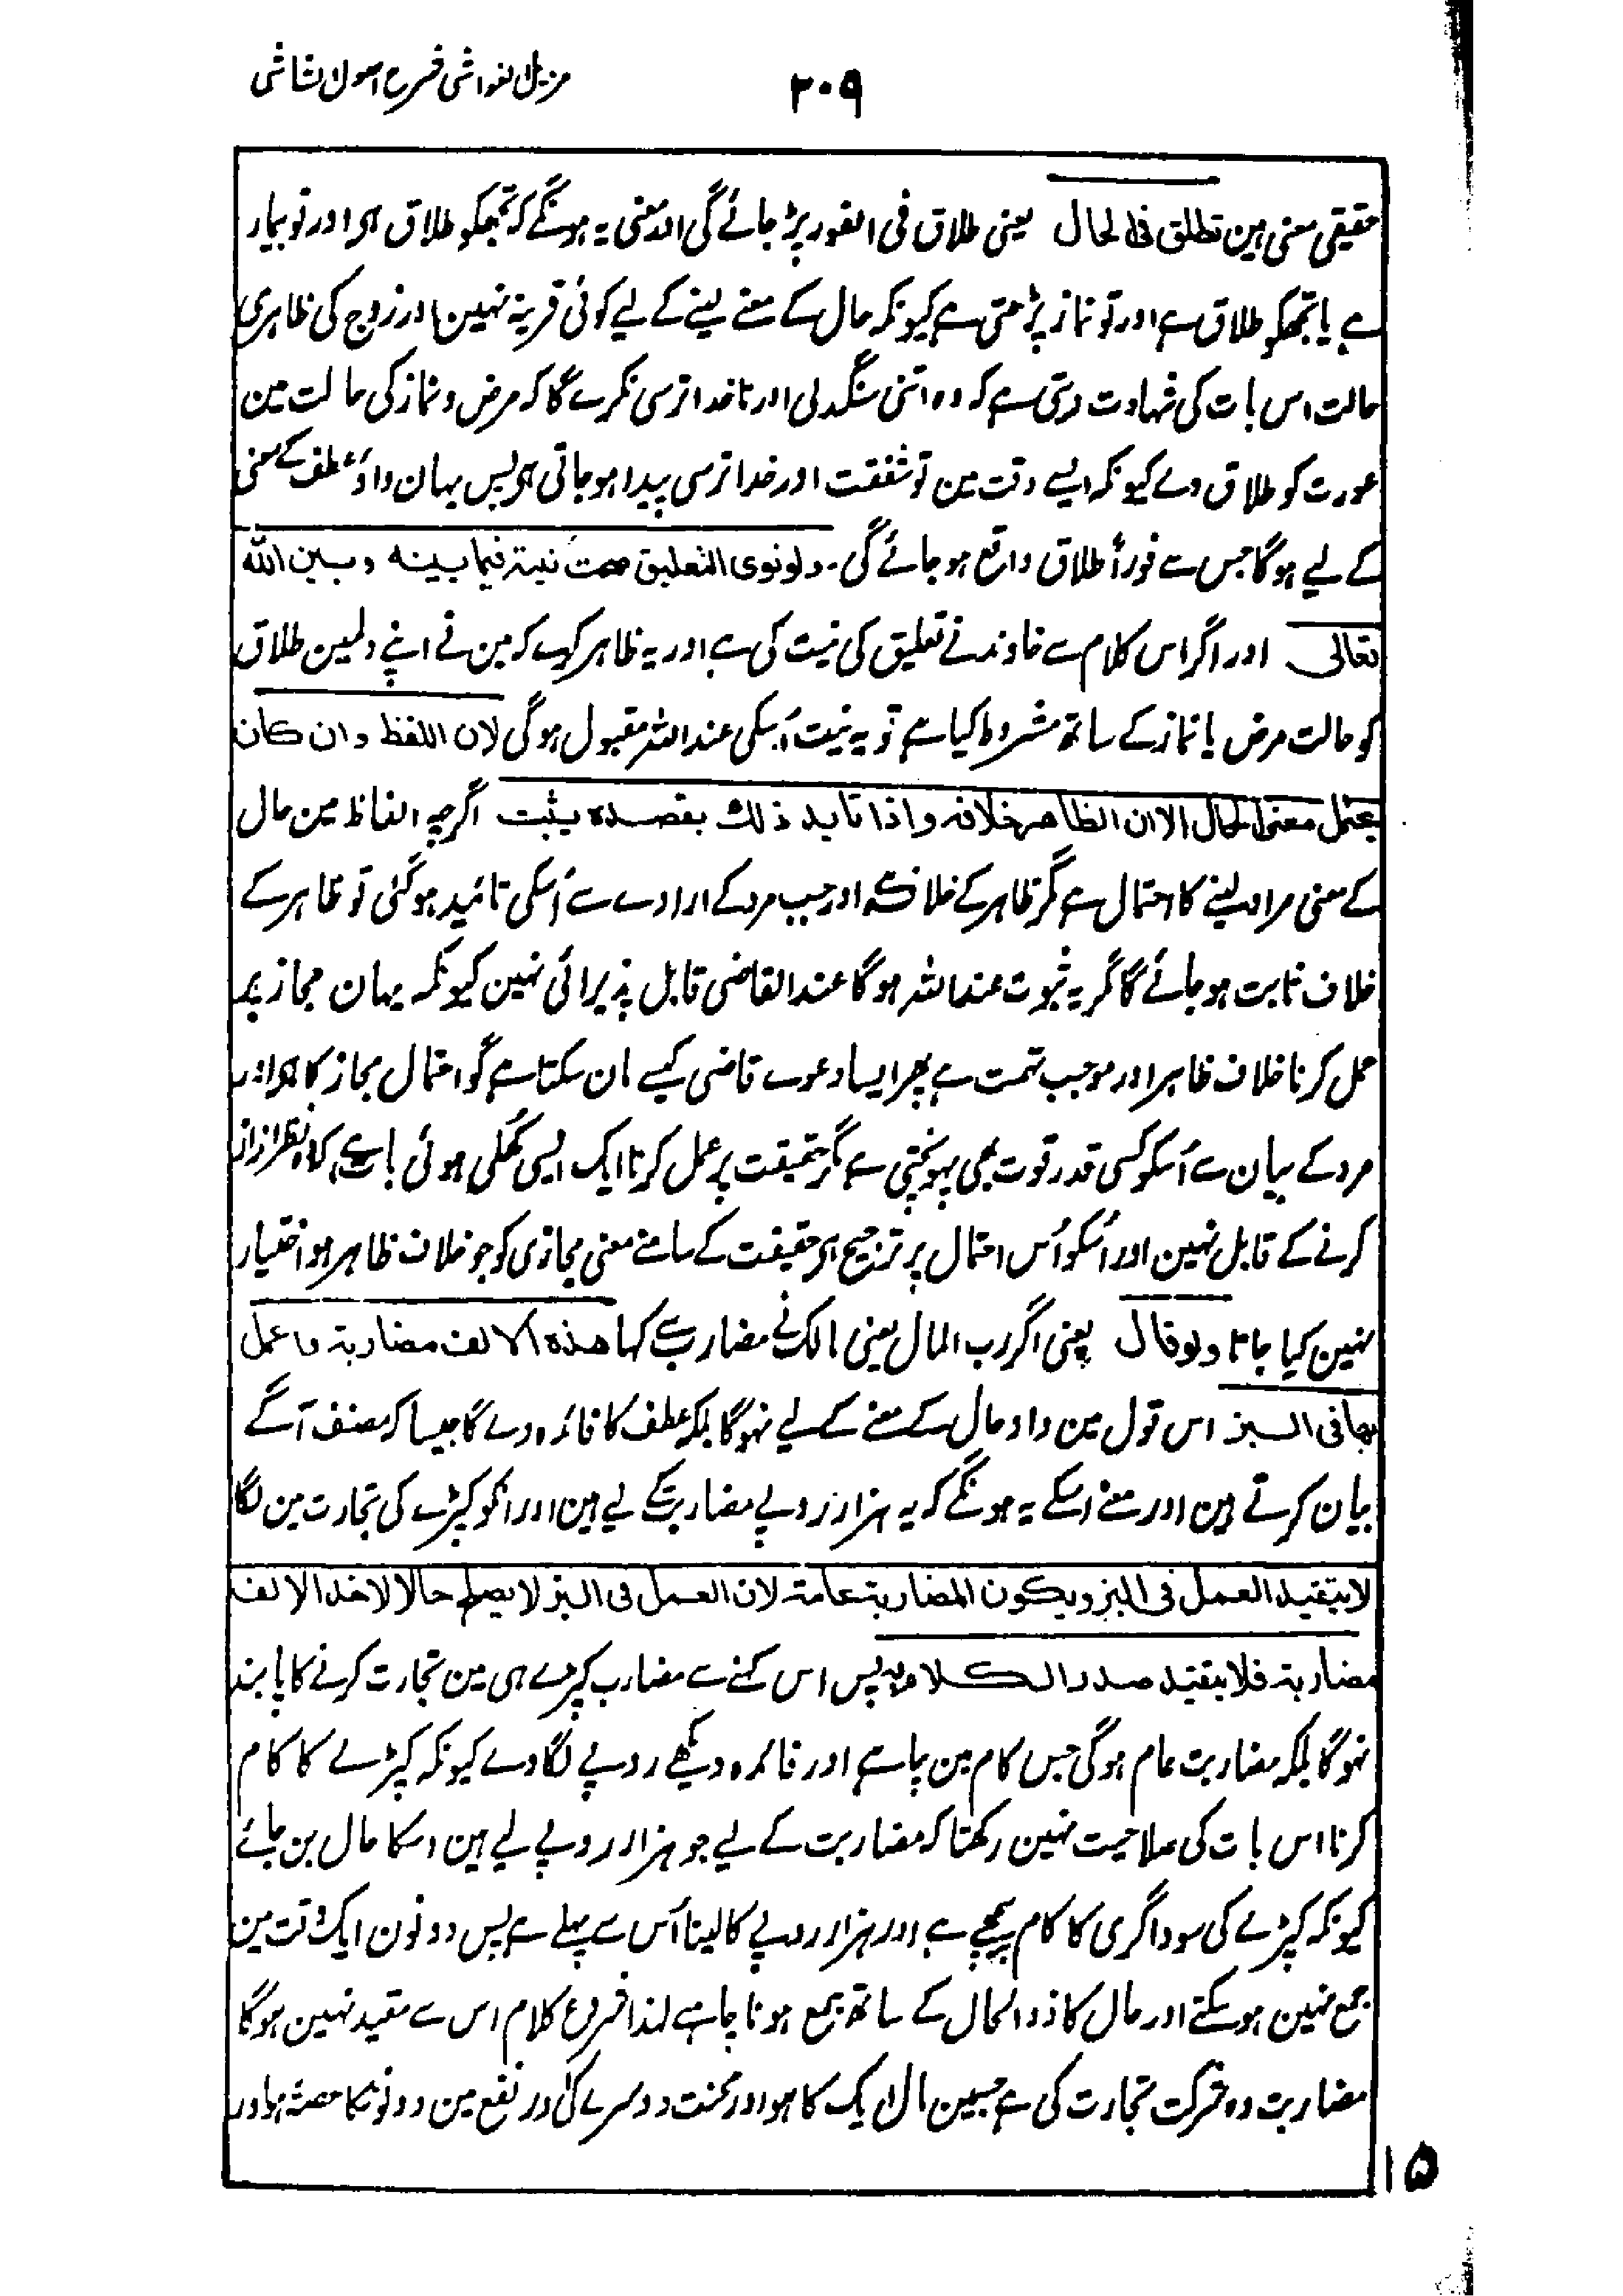 مزیل الغواشی شرح اصول الشاشی
۲۰۹
حقیقی معنی ہین تطلق فی الحال یعنی طلاق فی الفور پڑ جائے گی اور معنی یہ ہونگے کہ تجھکو طلاق ہی اور تو بیمار
ہے یا تجھکو طلاق ہے اور تو نماز پڑھتی ہے کیونکہ حال کے معنے لینے کے لیے کوئی قرینہ نہین اور زوج کی ظاہری
حالت اس بات کی شہادت دیتی ہے کہ وہ اتنی سنگدلی اور ناخدا ترسی نکرے گا کہ مرض و نماز کی حالت مین
عورت کو طلاق دے کیونکہ ایسے وقت مین تو شفقت اور خدا ترسی پیدا ہو جاتی ہی پس یہان واؤ عطف کے معنی
کے لیے ہوگا جس سے فوراً طلاق واقع ہو جائے گی۔ ولو نوی التعلیق صحت نیتہ فیما بینہ و بین اللہ
تعالی اور اگر اس کلام سے خاوند نے تعلیق کی نیت کی ہے اور یہ ظاہر کہے کہ مین نے اپنے دلمین طلاق
کو حالت مرض یا نماز کے ساتھ مشروط کیا ہے تو یہ نیت اُسکی عند اللہ مقبول ہوگی لان اللفظ وان کان
یحتمل معنی الحال الا ان الظاهر خلافہ و اذا تاید ذلك بقصدہ یثبت اگرچہ الفاظ مین حال
کے معنی مراد لینے کا احتمال ہے مگر ظاہر کے خلاف ہے اور جب مرد کے ارادے سے اُسکی تائید ہو گئی تو ظاہر کے
خلاف ثابت ہو جائے گا مگر یہ ثبوت عند اللہ ہوگا عند القاضی قابل پذیرائی نہین کیونکہ یہان مجاز پر
عمل کرنا خلاف ظاہر اور موجب تہمت ہے پھر ایسا دعوے قاضی کیسے مان سکتا ہے گو احتمال مجاز کا ہو اور
مرد کے بیان سے اُسکو کسی قدر قوت بھی پہونچتی ہے مگر حقیقت پر عمل کرنا ایک ایسی کھلی ہوئی بات ہے کہ وہ نظر انداز
کرنے کے قابل نہین اور اُسکو اُس احتمال پر ترجیح ہی حقیقت کے سامنے معنی مجازی کو جو خلاف ظاہر ہو اختیار
نہین کیا جاتا ولو قال یعنی اگر رب المال یعنی مالک نے مضارب سے کہا ھذہ الالف مضاربة واعمل
بھا فی البز اس قول مین واو حال کے معنے کے لیے نہوگا بلکہ عطف کا فائدہ دے گا جیسا کہ مصنف آگے
بیان کرتے ہین اور معنے اسکے یہ ہونگے کہ یہ ہزار روپے مضاربت کے لیے ہین اور انکو کپڑے کی تجارت مین لگا
لا یتقید العمل فی البز ویکون المضاربة عامة لان العمل فی البز لا یصلح حالا لاخذ الالف
مضاربة فلا یتقید صدر الکلام بہ پس اس کہنے سے مضارب کپڑے ہی مین تجارت کرنے کا پابند
نہوگا بلکہ مضاربت عام ہوگی جس کام مین چاہے اور فائدہ دیکھے روپے لگا دے کیونکہ کپڑے کا کام
کرنا اس بات کی صلاحیت نہین رکھتا کہ مضاربت کے لیے جو ہزار روپے لیے ہین اسکا حال بن جائے
کیونکہ کپڑے کی سوداگری کا کام پیچھے ہے اور ہزار روپے کا لینا اُس سے پہلے ہے پس دونون ایک وقت مین
جمع نہین ہو سکتے اور حال کا ذو الحال کے ساتھ جمع ہونا چاہیے لہذا شروع کلام اس سے مقید نہین ہوگا
مضاربت وہ شرکت تجارت کی ہے جسمین مال ایک کا ہو اور محنت دوسرے کی اور نفع مین دونونکا حصہ ہو اور
۱۵